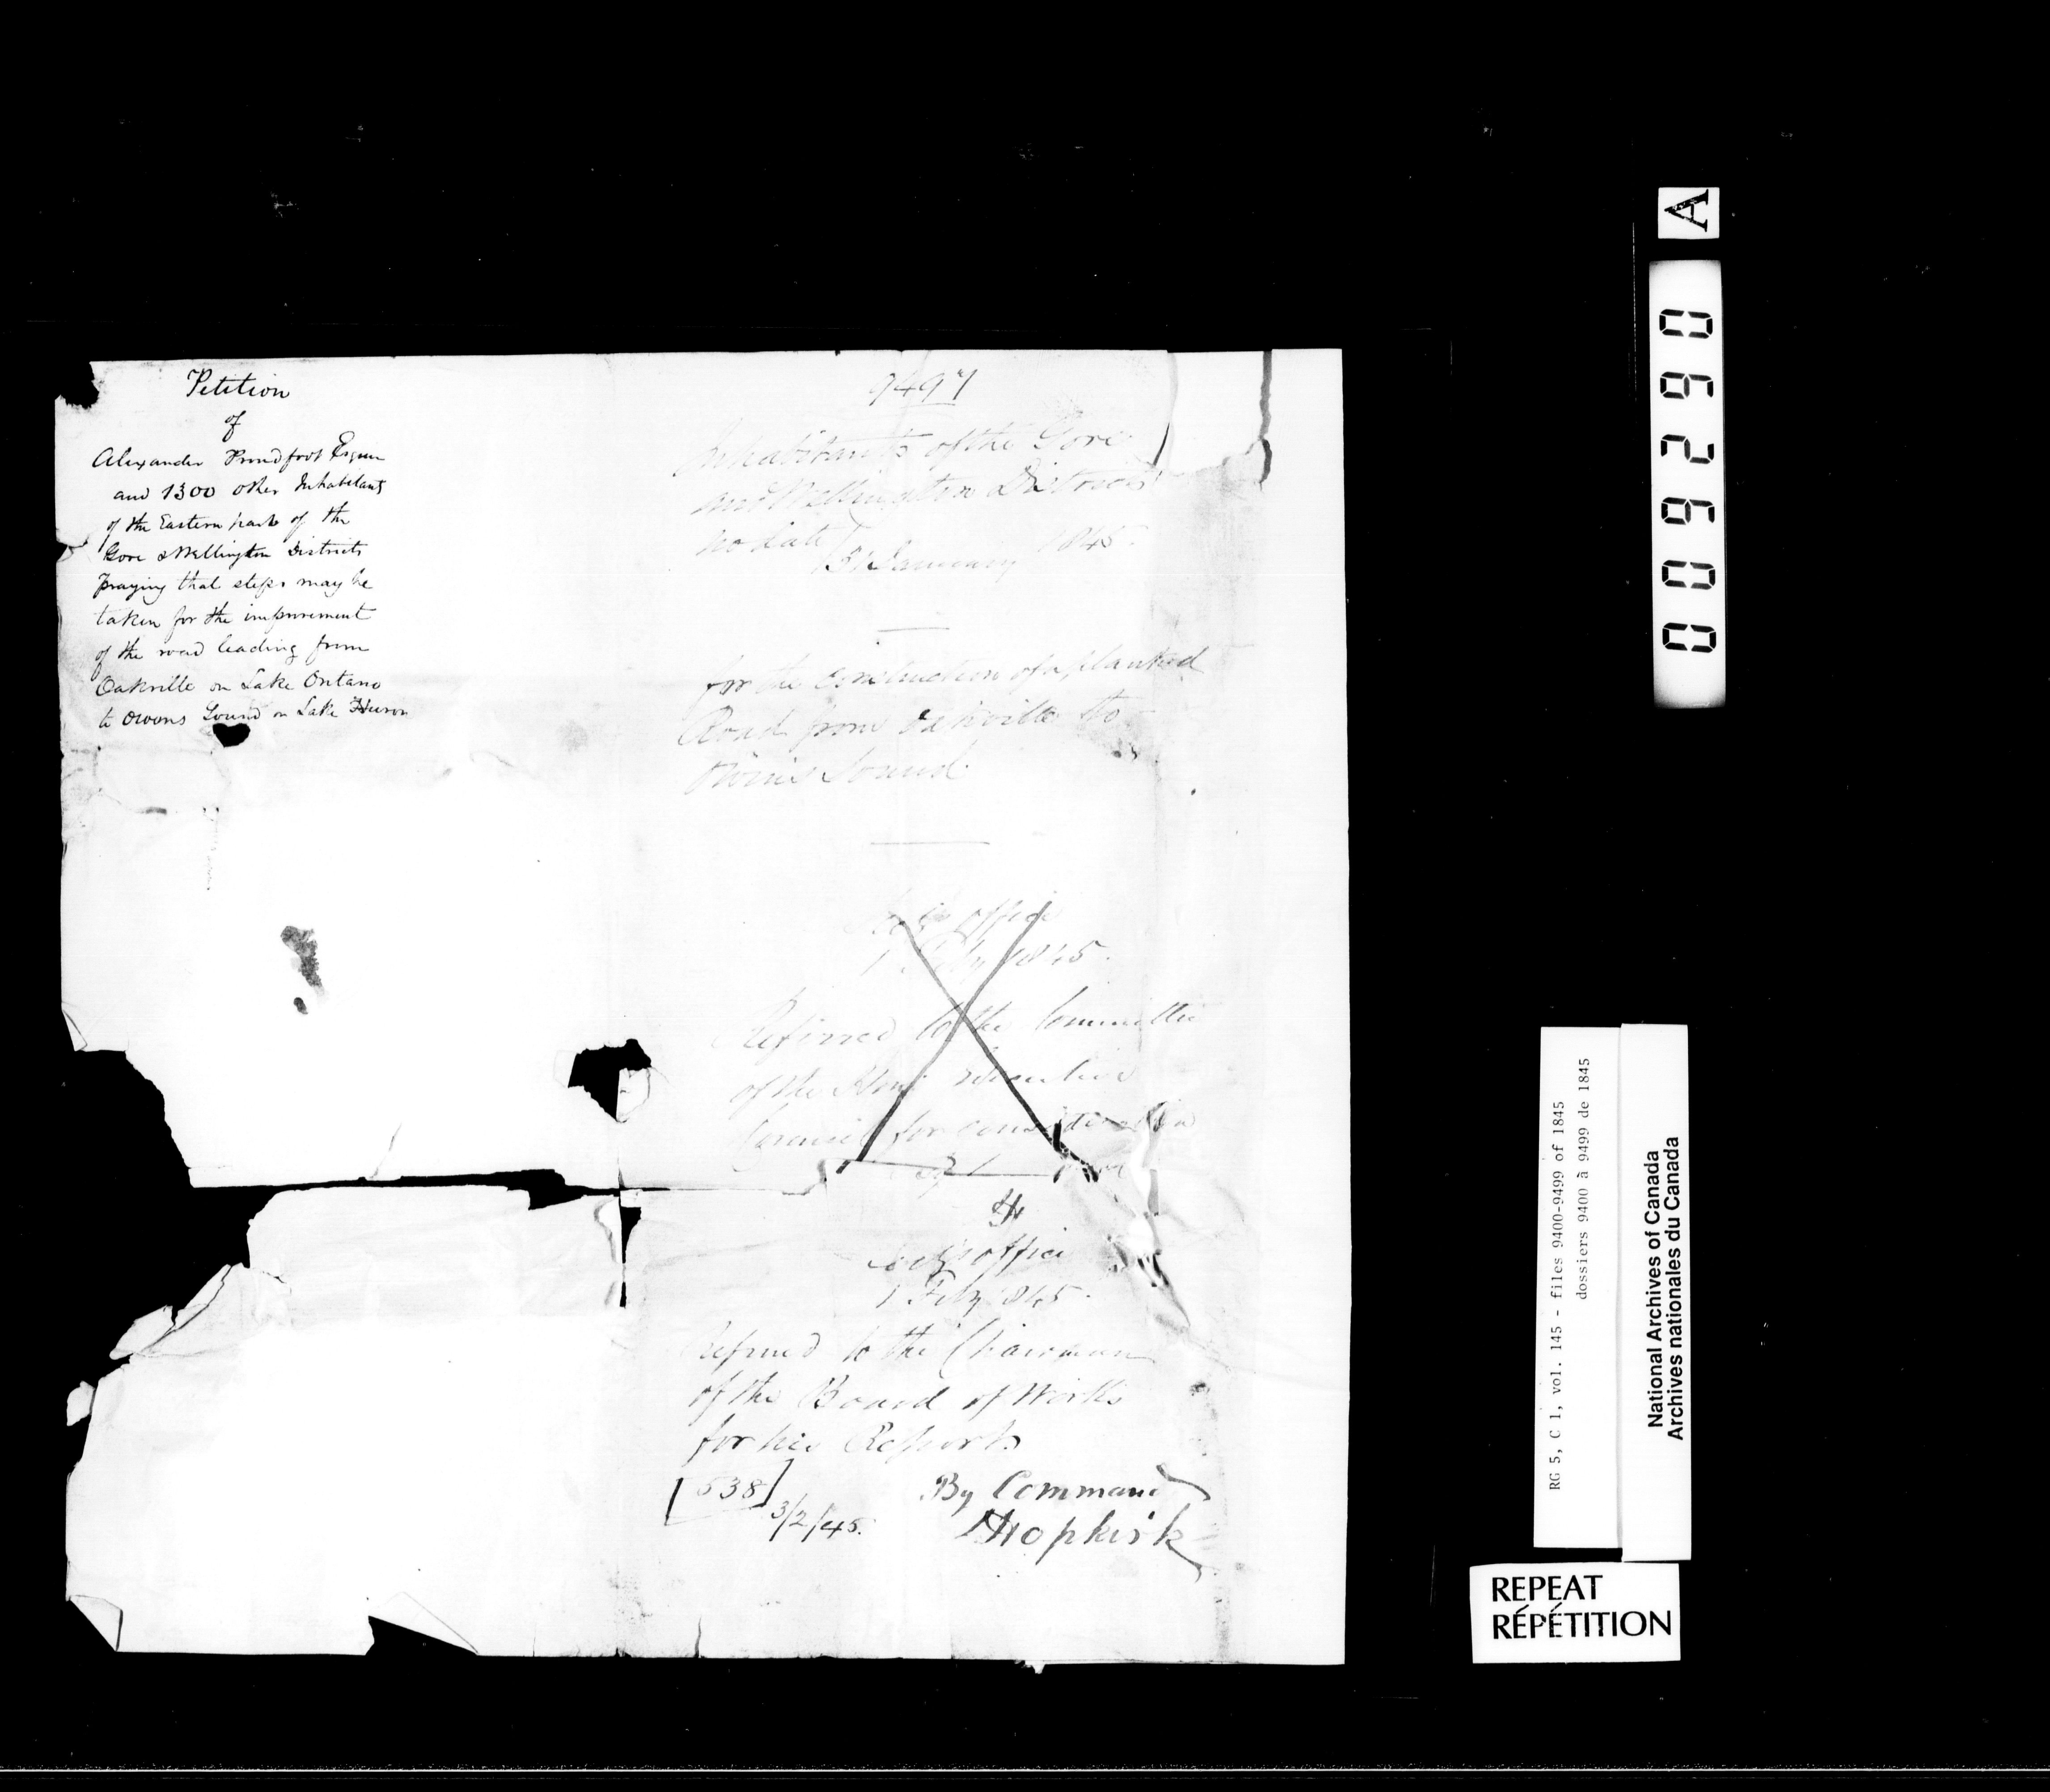 Petition
of
Alexander Proudfoot Esquire
and 1300 other Inhabitants
of the Eastern part of the
Gore & Wellington Districts
Praying that steps may be
taken for the improvement
of the road leading from
Oakville on Lake Ontario
to Owens Sound on Lake Huron
9497
Inhabitants of the Gore
and Wellington Districts
no date
31 January 1845.
for the construction of a planked
Road from Oakville to
Owens Sound.
office
1 Feby 1845.
Referred to the Committee
of the Hon: Executive
Council for consideration
H
Secy's office
1 Feby 1845.
Referred to the Chairman
of the Board of Works
for his Report
[538]
3/2/45.
By Command
Hopkirk
A
0062960
RG 5, C 1, vol. 145 - files 9400-9499 of 1845
dossiers 9400 à 9499 de 1845
National Archives of Canada
Archives nationales du Canada
REPEAT
RÉPÉTITION